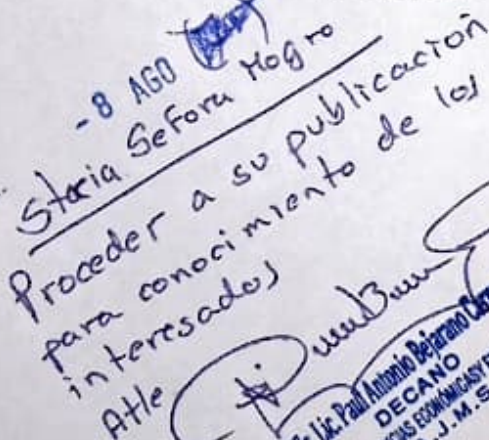 - 8 AGO
Stacia Sefora Mogro
Proceder a su publicación
para conocimiento de los
interesados
Atte
Lic. Paul Antonio Bejarano
DECANO
ECONÓMICAS Y
J.M.S.